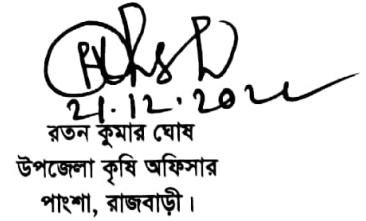 21.12.2022
রতন কুমার ঘোষ
উপজেলা কৃষি অফিসার
পাংশা, রাজবাড়ী।